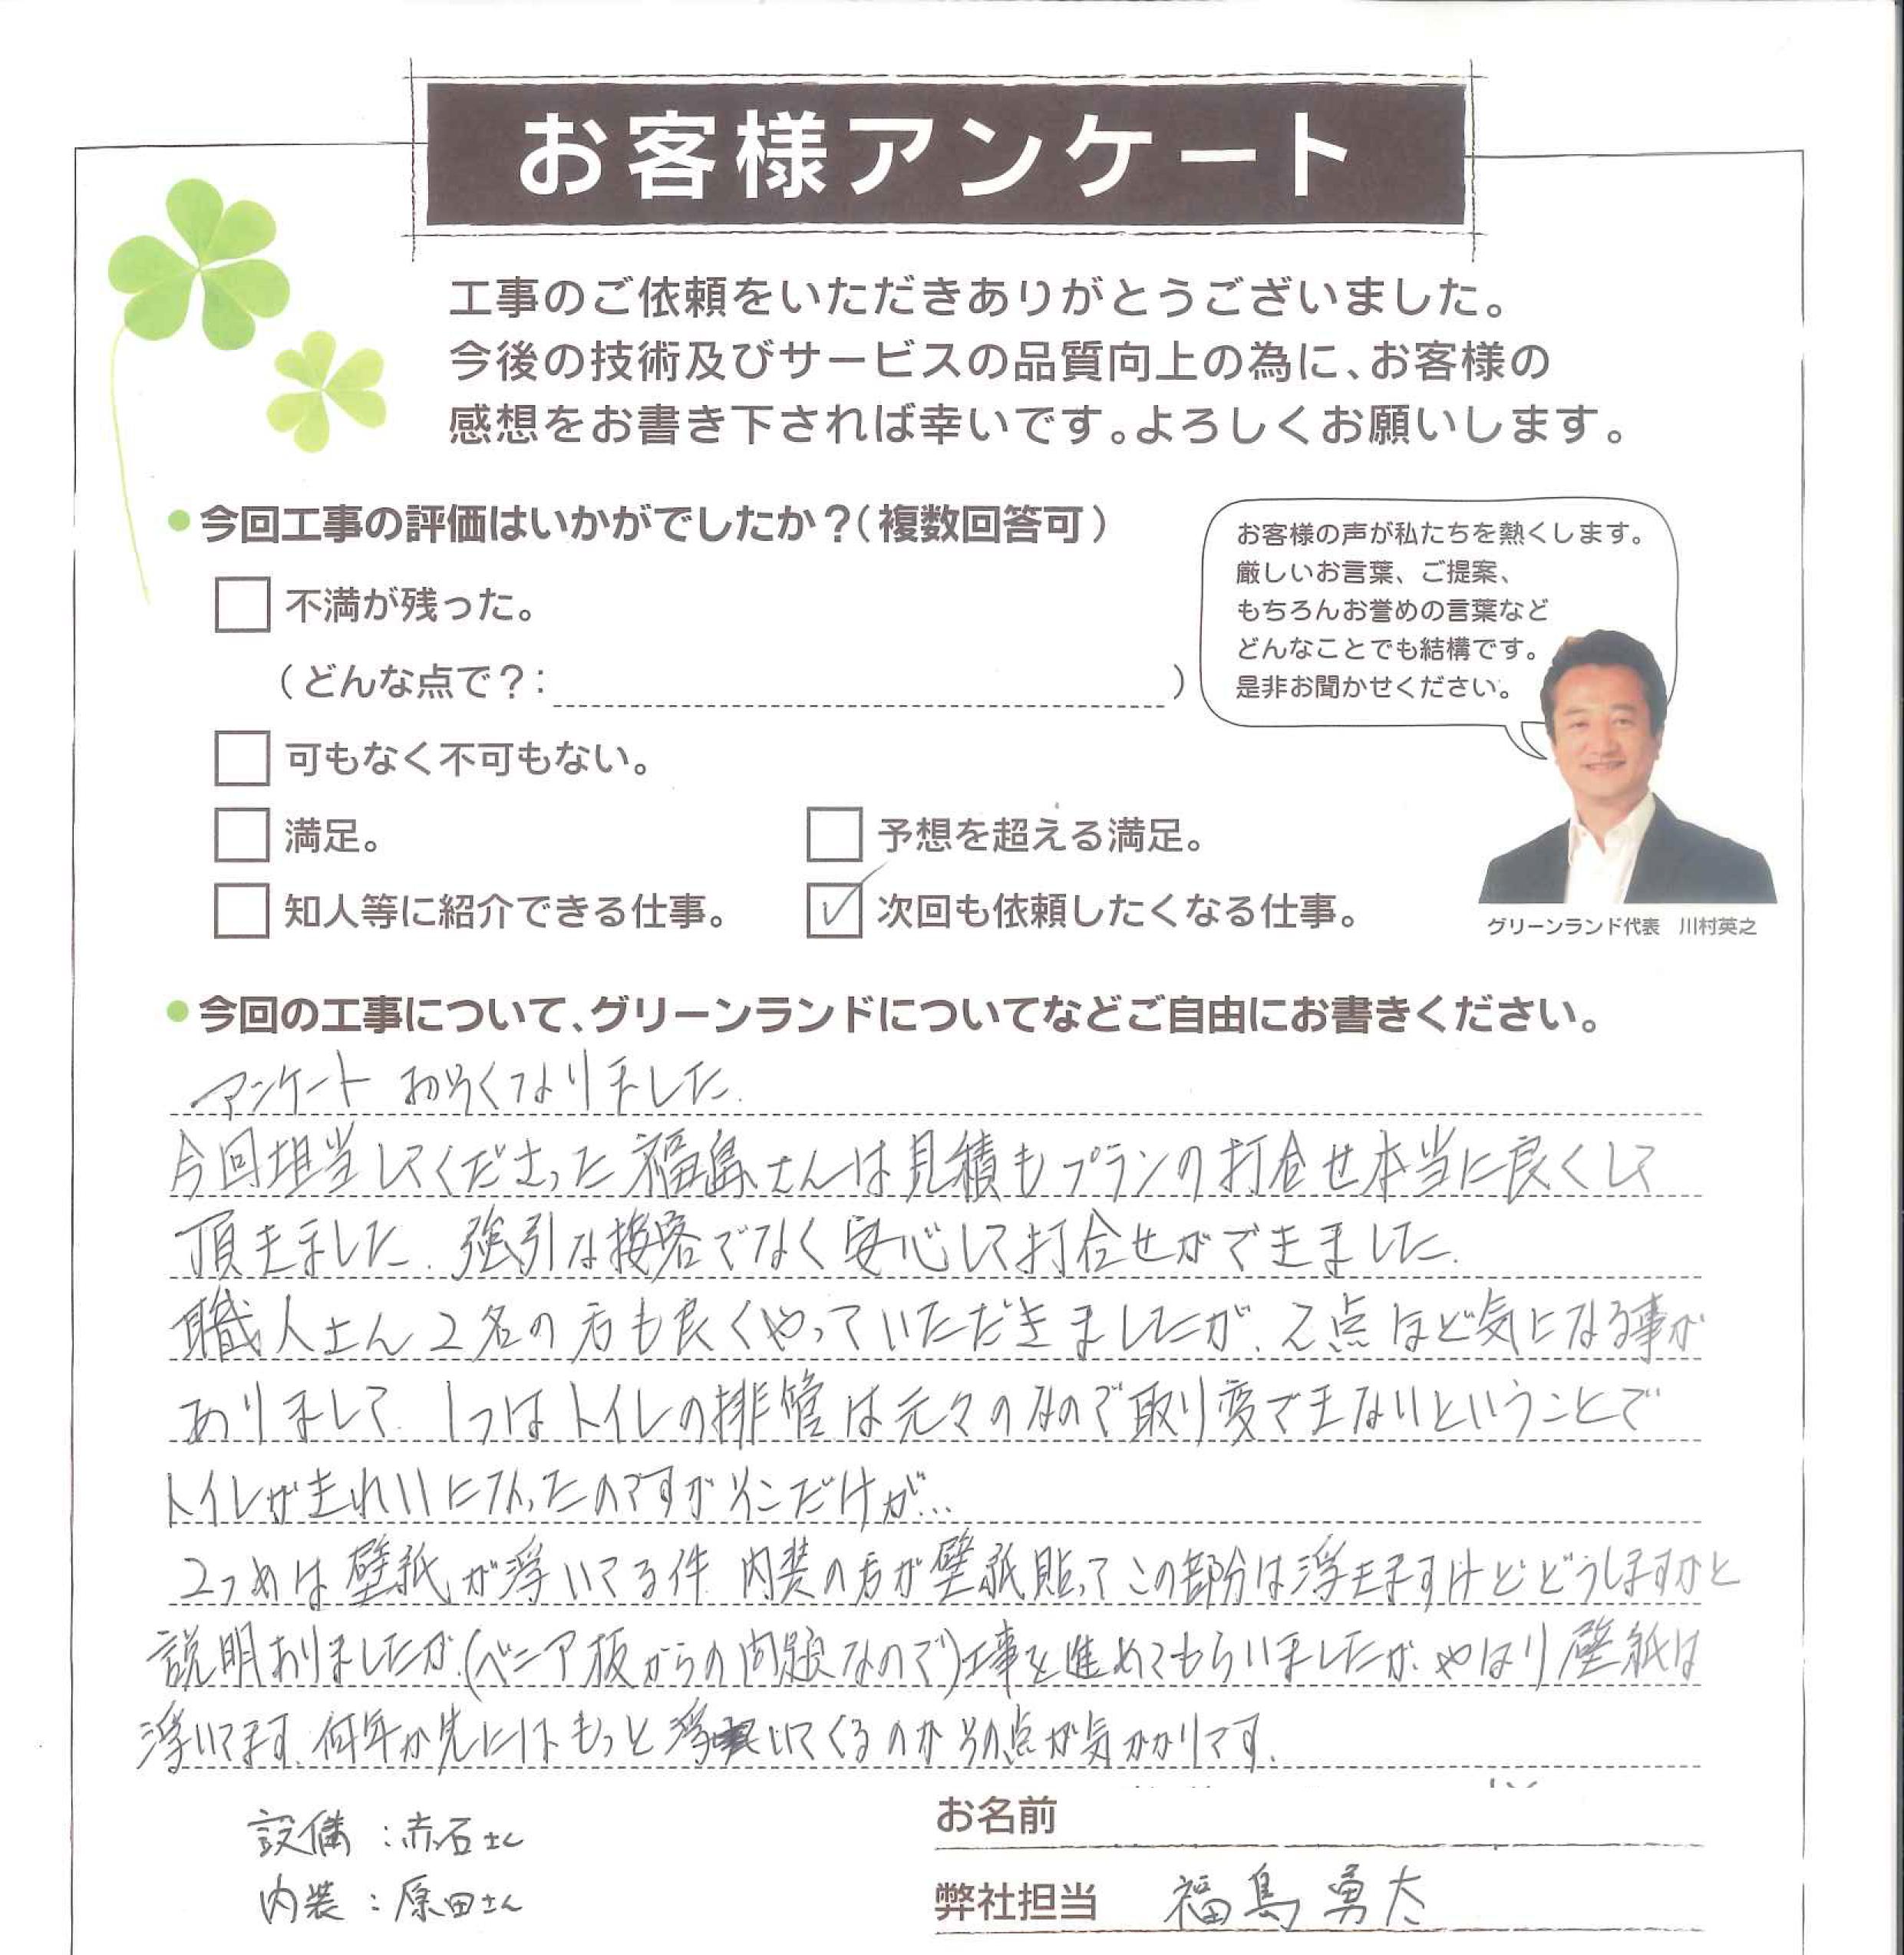 お客様アンケート
工事のご依頼をいただきありがとうございました。
今後の技術及びサービスの品質向上の為に、お客様の
感想をお書き下されば幸いです。よろしくお願いします。
●今回工事の評価はいかがでしたか？（複数回答可）
不満が残った。
（どんな点で？：　　）
可もなく不可もない。
満足。
予想を超える満足。
知人等に紹介できる仕事。
✓次回も依頼したくなる仕事。
お客様の声が私たちを熱くします。
厳しいお言葉、ご提案、
もちろんお誉めの言葉など
どんなことでも結構です。
是非お聞かせください。
グリーンランド代表　川村英之
●今回の工事について、グリーンランドについてなどご自由にお書きください。
アンケート おそくなりました.
今回担当してくださった福島さんは見積もプランの打合せ本当に良くして
頂きました. 強引な接客でなく安心して打合せができました.
職人さん2名の方も良くやっていただきましたが、2点ほど気になる事が
ありまして. 1つはトイレの排管は元々のなので取り変できないということで
トイレがきれいになったのですがそこだけが…
2つめは壁紙が浮いてる件. 内装の方が壁紙貼ってこの部分は浮きますけどどうしますかと
説明ありましたが、(ベニア板からの問題なので)工事を進めてもらいましたが、やはり壁紙は
浮いてます. 何年か先にはもっと浮いてくるのかその点が気がかりです.
設備：赤石さん
内装：原田さん
お名前
弊社担当　福島勇太